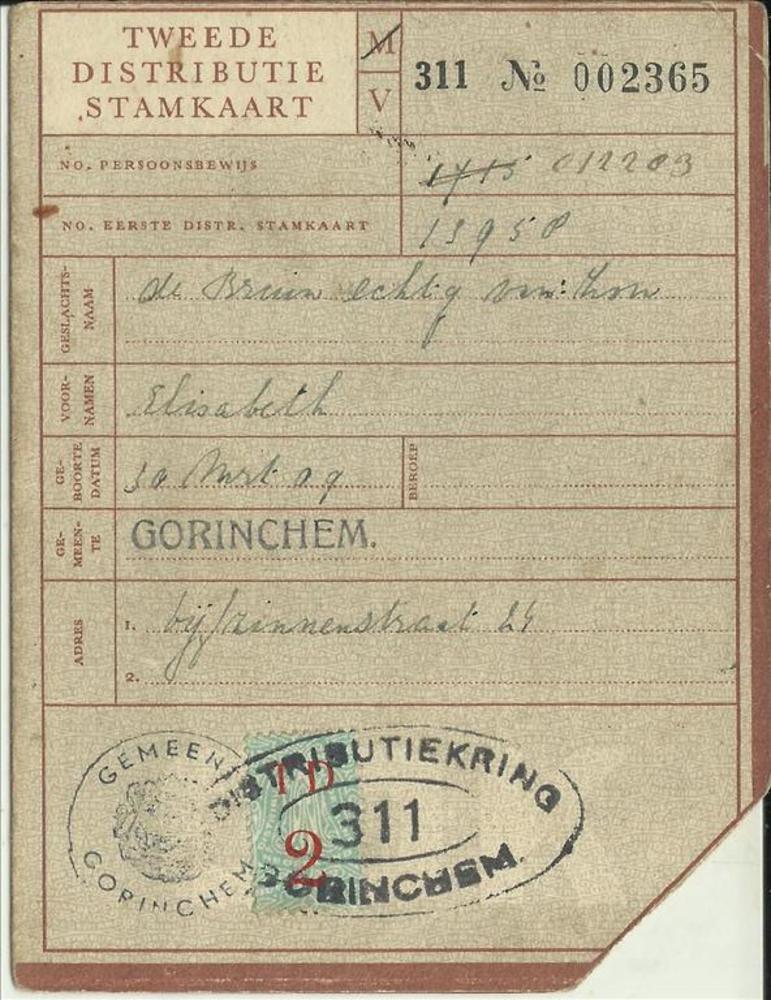 TWEEDE
DISTRIBUTIE
STAMKAART
M
V
311 № 002365
NO. PERSOONSBEWIJS
1715 012203
NO. EERSTE DISTR. STAMKAART
13958
GESLACHTS-
NAAM
de Bruin echtg van:
VOOR-
NAMEN
Elisabeth
GE-
BOORTE
DATUM
30 Mrt 09
BEROEP
GE-
MEEN-
TE
GORINCHEM.
ADRES
1. bij/zinnenstraat 24
2.
GEMEEN
GORINCHEM
TD
2
DISTRIBUTIEKRING
311
GORINCHEM